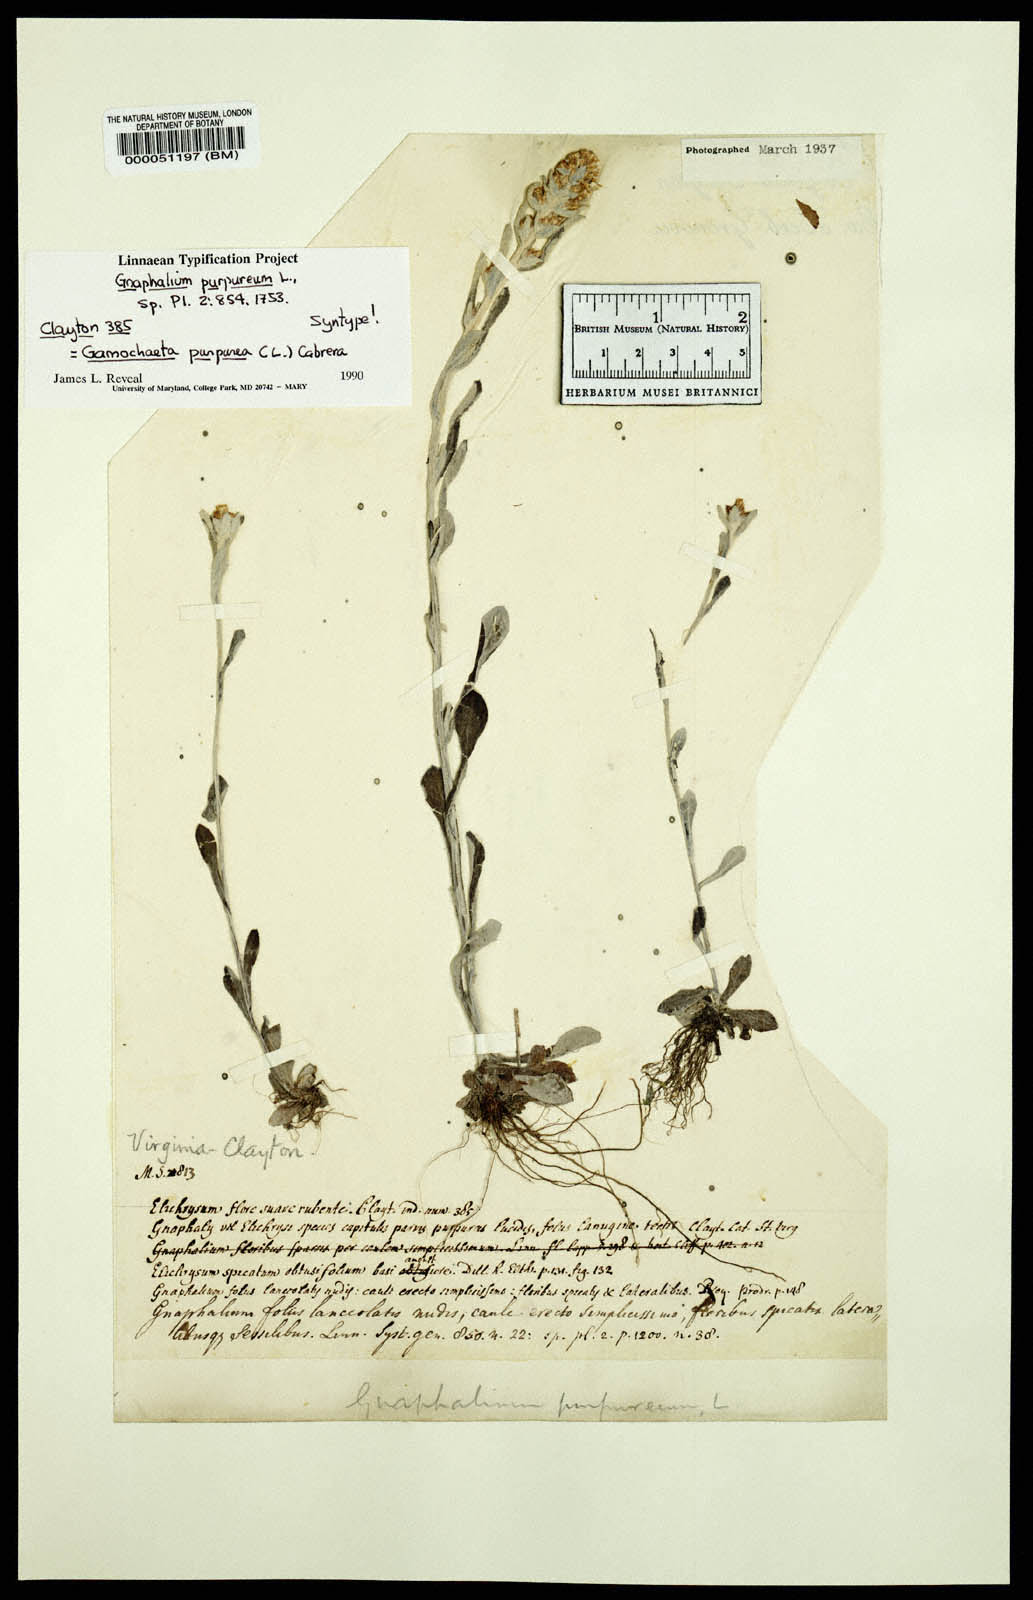 THE NATURAL HISTORY MUSEUM, LONDON
DEPARTMENT OF BOTANY
000051197 (BM)
Photographed March 1937
Linnaean Typification Project
Gnaphalium purpureum L.,
Sp. Pl. 2: 854. 1753.
Clayton 385 Syntype!
= Gamochaeta purpurea (L.) Cabrera
James L. Reveal 1990
University of Maryland, College Park, MD 20742 – MARY
1 2
BRITISH MUSEUM (NATURAL HISTORY)
1 2 3 4 5
HERBARIUM MUSEI BRITANNICI
Virginia - Clayton.
M.S. 813
Elichrysum flore suave rubente. Clayt. ind. num. 385
Gnaphaly vel Elichrysi species capitulis parvis purpureis lucidis, foliis Lanugine tectis Clayt. Cat. St. Virg
Gnaphalium floribus sparsis per caulem simplicissimum. Linn. fl. Lapp. 298 & hort. Cliff. p. 402. n. 2
Elichrysum spicatum obtusifolium basi Dill. h. Elth. p. 131. fig. 132
Gnaphalium foliis lanceolatis nudis: caule erecto simplicissimo: floribus spicatis & lateralibus. Roy. prodr. p. 148
Gnaphalium foliis lanceolatis nudis, caule erecto simplicissimo, floribus spicatis latera=
libusq; sessilibus. Linn. Syst. gen. 850. n. 22: sp. pl. 2. p. 1200. n. 38.
Gnaphalium purpureum, L